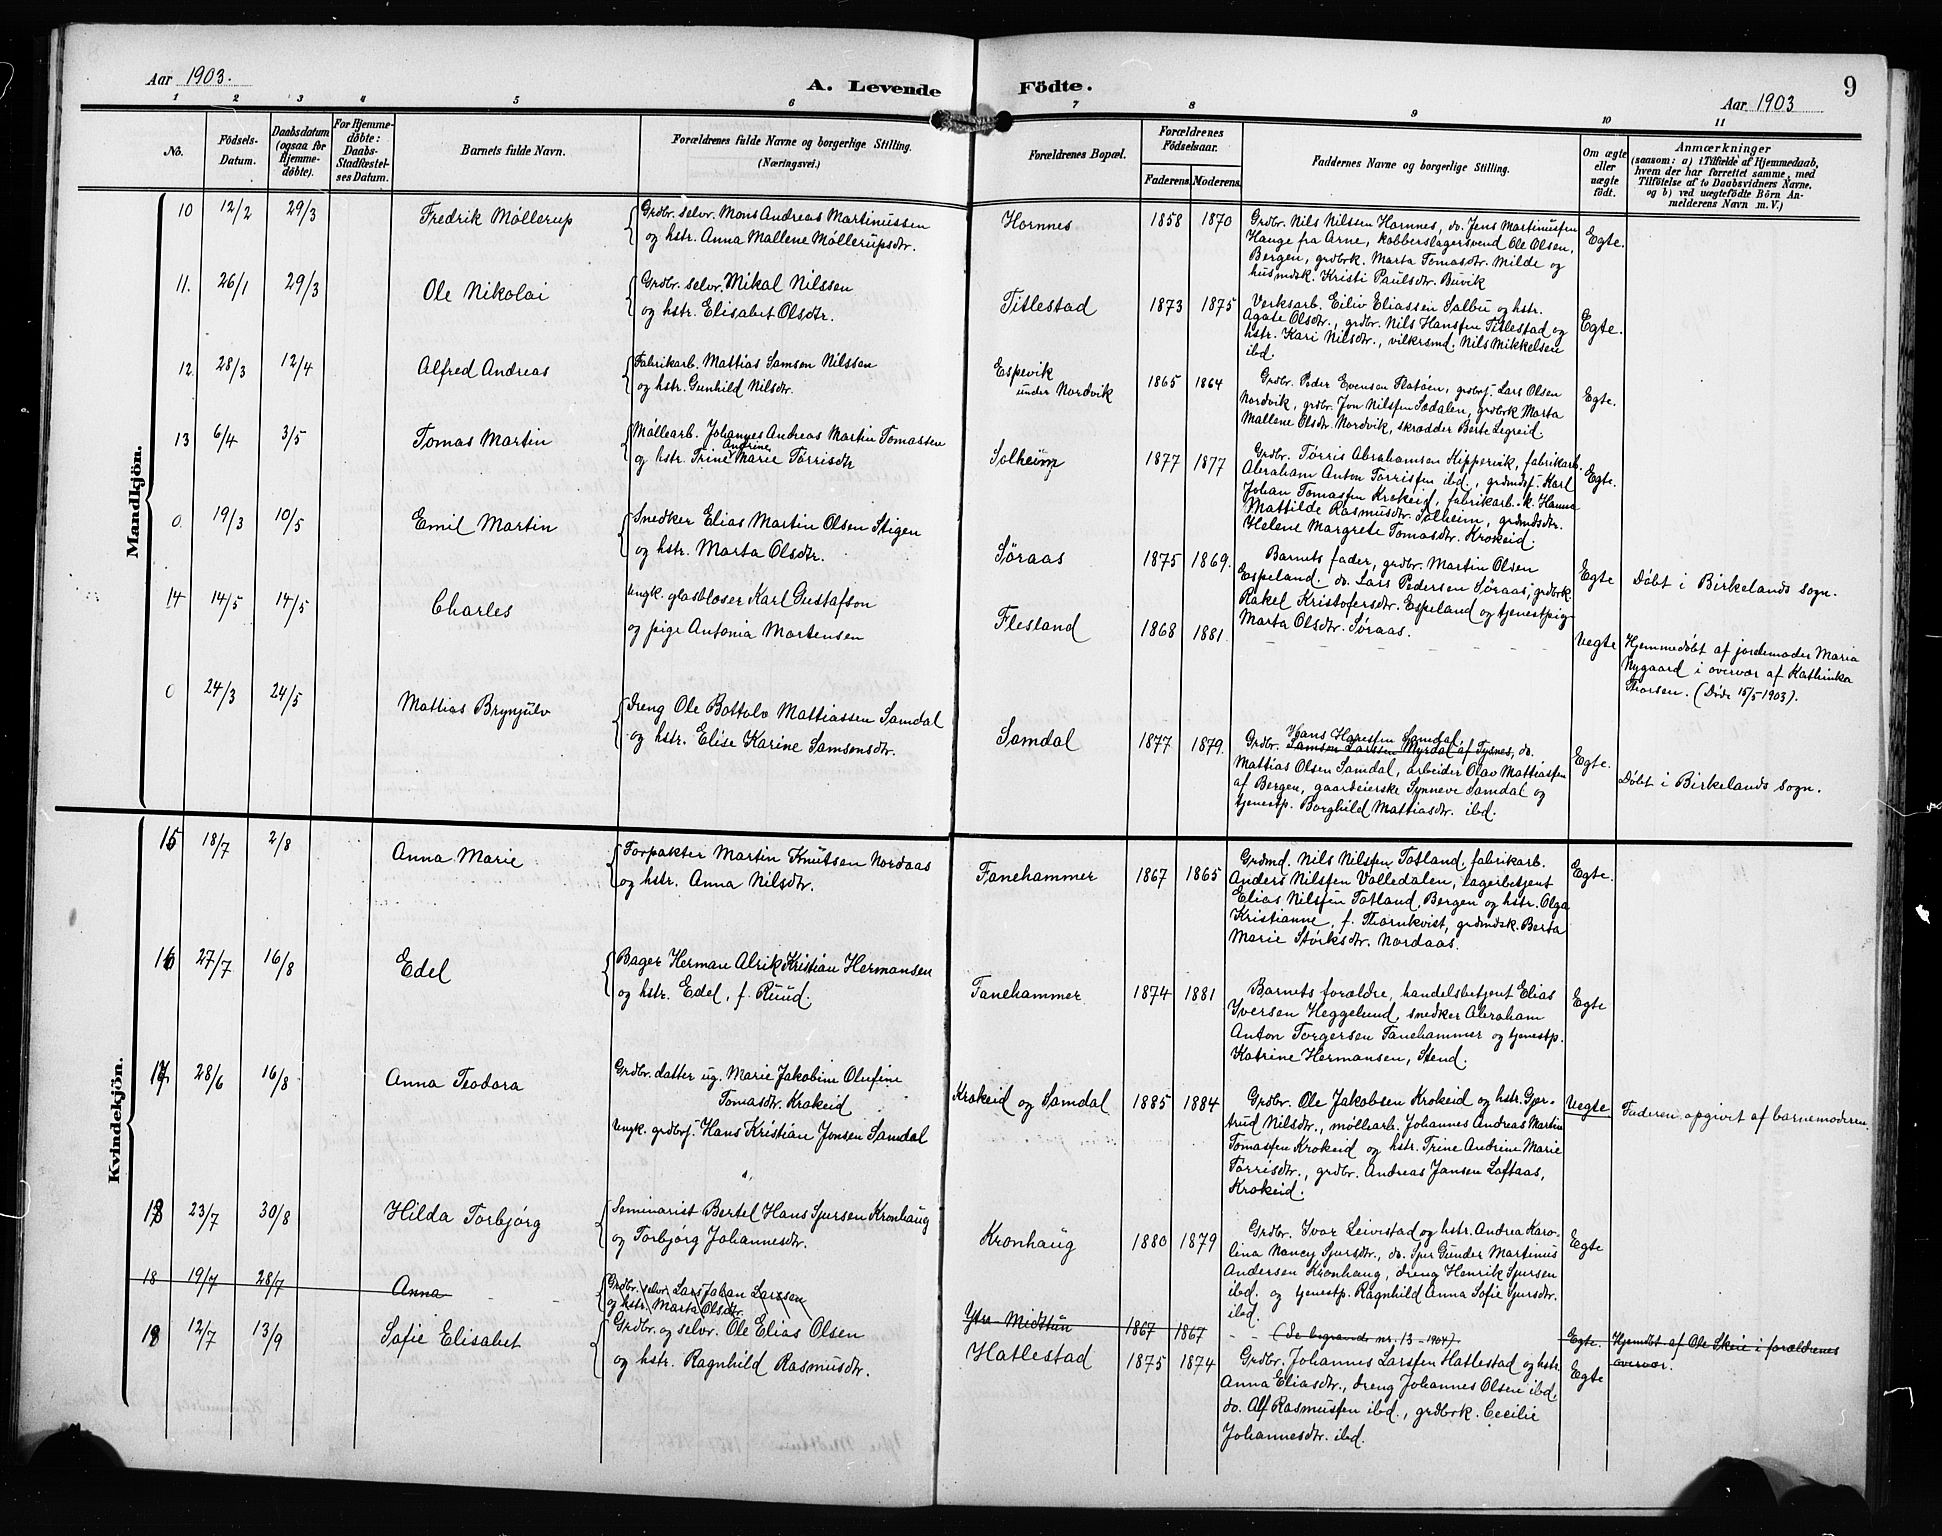 Aar 1903. A. Levende Födte. Aar 1903 9
1 2 3 4 5 6 7 8 9 10 11
No. Födsels-Datum. Daabsdatum (ogsaa for Hjemmedöbte). For Hjemmedöbte: Daabs-Stadfæstelses Datum. Barnets fulde Navn. Forældrenes fulde Navne og borgerlige Stilling. (Næringsvei.) Forældrenes Bopæl. Forældrenes Födselsaar. Faderens. Moderens. Faddernes Navne og borgerlige Stilling. Om ægte eller uægte födt. Anmærkninger (saasom: a) i Tilfælde af Hjemmedaab, hvem der har forrettet samme, med Tilföielse af to Daabsvidners Navne, og b) ved uægtefödte Börn Anmelderens Navn m. V.)
Mandkjön.
10 12/2 29/3 Fredrik Møllerup
Grdbr. selv. Mons Andreas Martinussen
og hstr. Anna Mallene Møllerupsdtr.
Hornnes 1858 1870
Grdbr. Nils Nilssen Hornnes, do. Jens Martinussen
Hauge fra Arne, kobberslagersvend Ole Olsen,
Bergen, grdbrk. Marta Tomasdtr. Milde og
husmdsk. Kristi Paulsdtr. Buvik
Egte.
11. 26/1 29/3 Ole Nikolai
Grdbr. selv. Mikal Nilssen
og hstr. Elisabet Olsdtr.
Titlestad 1873 1875
Verksarb. Eiliv Eliassen Salbu og hstr.
Agate Olsdtr., grdbr. Nils Hanssen Titlestad og
hstr. Kari Nilsdtr., vilkrsmd. Nils Mikkelsen
ibd.
Egte.
12. 28/3 12/4 Alfred Andreas
Fabrikarb. Mattias Samson Nilsson
og hstr. Gunhild Nilsdtr.
Espevik
under Nordvik 1865 1864
Grdbr. Peder Evensen Flatøen, grdbrf. Lars Olsen
Nordvik, grdbr. Jon Nilssen Sædalen, grdbrk Marta
Mallene Olsdtr. Nordvik, skrædder Berte Legreid
Egte.
13 6/4 3/5 Tomas Martin
Møllearb. Johannes Andreas Martin Tomassen
og hstr. Trine Andrine Marie Tørrisdtr
Solheim 1877 1877
Grdbr. Tørris Abrahamsen Kippervik, fabrikarb.
Abraham Anton Tørrissen ibd., grdmdsf. Karl
Johan Tomassen Krokeid, fabrikarb. k. Hanna
Mattilde Rasmusdtr. Solheim, grdmdsdtr.
Helene Margrete Tomasdtr. Krokeid.
Egte.
0. 19/3 10/5 Emil Martin
Snedker Elias Martin Olsen Stigen
og hstr. Marta Olsdtr.
Søraas 1875 1869.
Barnets fader, grdbr. Martin Olsen
Espeland. do. Lars Pedersen Søraas, grdbrk
Rakel Kristofersdtr. Espeland og tjenestpig
Marta Olsdtr. Søraas.
Egte Døbt i Birkelands sogn.
14 14/5 14/5 Charles
Ungk. glasblæser Karl Gustafson
og pige Antonia Mortensen
Flesland 1868 1881
Uegte Hjemmedøbt af jordemoder Maria
Nygaard i overvær af Kathinka
Thorsen. (Døde 15/5-1903).
0 24/3 24/5 Mattias Brynjulv
Dreng Ole Bottolv Mattiassen Samdal
og hstr. Elise Karine Samsonsdtr.
Samdal 1877 1879.
Hans Hanssen Samdal,
Grdbr. Samson Larssen Myrdal af Tysnes, do.
Mattias Olsen Samdal, arbeider Olav Mattiassen
af Bergen, gaardeierske Synneve Samdal og
tjenestp. Borghild Mattiasdtr. ibd.
Egte. Døbt i Birkelands sogn.
Kvindekjön.
15 18/7 2/8 Anna Marie
Forpakter Martin Knutsen Nordaas
og hstr. Anna Nilsdtr.
Fanehammer 1867 1865
Grdmd. Nils Nilssen Totland, fabrikarb.
Anders Nilssen Valledalen, lagerbetjent
Elias Nilssen Totland, Bergen og hstr. Olga
Kristianne, f. Thornkvist, grdmdsk. Berta
Marie Størksdtr. Nordaas.
Egte.
16 27/7 16/8 Edel
Bager Herman Alrik Kristian Hermansen
og hstr. Edel, f. Ruud.
Fanehammer 1874 1881
Barnets forældre, handelsbetjent Elias
Iversen Heggelund, snedker Abraham
Anton Torgersen Fanehammer og tjenestp.
Katrine Hermansen, Stend.
Egte
17 28/6 16/8 Anna Teodora
Grdbr. datter ug. Marie Jakobine Olufine
Tomasdtr. Krokeid
Ungk. grdbrf. Hans Kristian Jonsen Samdal
Krokeid og Samdal 1885 1884
Grdbr. Ole Jakobsen Krokeid og hstr. Gjer-
trud Nilsdtr., møllearb. Johannes Andreas Martin
Tomassen Krokeid og hstr. Trine Andrine Marie
Tørrisdtr., grdbr. Andreas Jansen Loftaas,
Krokeid.
Uegte Faderen opgivet af barnemoderen.
18 23/7 30/8 Hilda Torbjørg
Seminarist Bertel Hans Sjursen Kronhaug
og Torbjørg Johannesdtr.
Kronhaug 1880 1879
Grdbr. Ivar Leivestad og hstr. Andrea Karo-
lina Nancy Sjursdtr., do. Sjur Gunder Martinus
Andersen Kronhaug, dreng Henrik Sjursen
ibd. og tjenestp. Ragnhild Anna Sofie Sjursdtr.
ibd.
Egte
18 19/7 28/7 Anna
Grdbr. selv. Lars Johan Larssen
og hstr. Marta Olsdtr.
Ytre Midttun 1867 1867
(Se begravede nr. 13-1904).
Egte. Hjemdøbt af Ole Skeie i forældrenes
overvær.
19 12/7 13/9 Sofie Elisabet
Grdbr. og selv. Ole Elias Olsen
og hstr. Ragnhild Rasmusdtr.
Hatlestad 1875 1874
Grdbr. Johannes Larssen Hatlestad og hstr.
Anna Eliasdtr., dreng Johannes Olsen ibd.
do. Alf Rasmussen ibd., grdbrk. Cecilie
Johannesdtr. ibd.
Egte